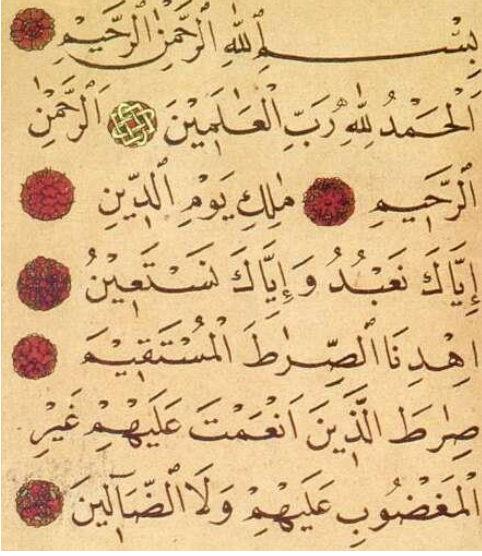 بِسْمِ ٱللهِ ٱلرَّحْمٰنِ ٱلرَّحٖيمِ
اَلْحَمْدُ لِلّٰهِ رَبِّ ٱلْعَالَمٖينَ اَلرَّحْمٰنِ
ٱلرَّحٖيمِ مٰلِكِ يَوْمِ ٱلدّٖينِ
إِيَّاكَ نَعْبُدُ وَإِيَّاكَ نَسْتَعٖينُ
اِهْدِنَا ٱلصِّرٰطَ ٱلْمُسْتَقٖيمَ
صِرٰطَ ٱلَّذٖينَ اَنْعَمْتَ عَلَيْهِمْ غَيْرِ
ٱلْمَغْضُوبِ عَلَيْهِمْ وَلَا ٱلضَّآلّٖينَ